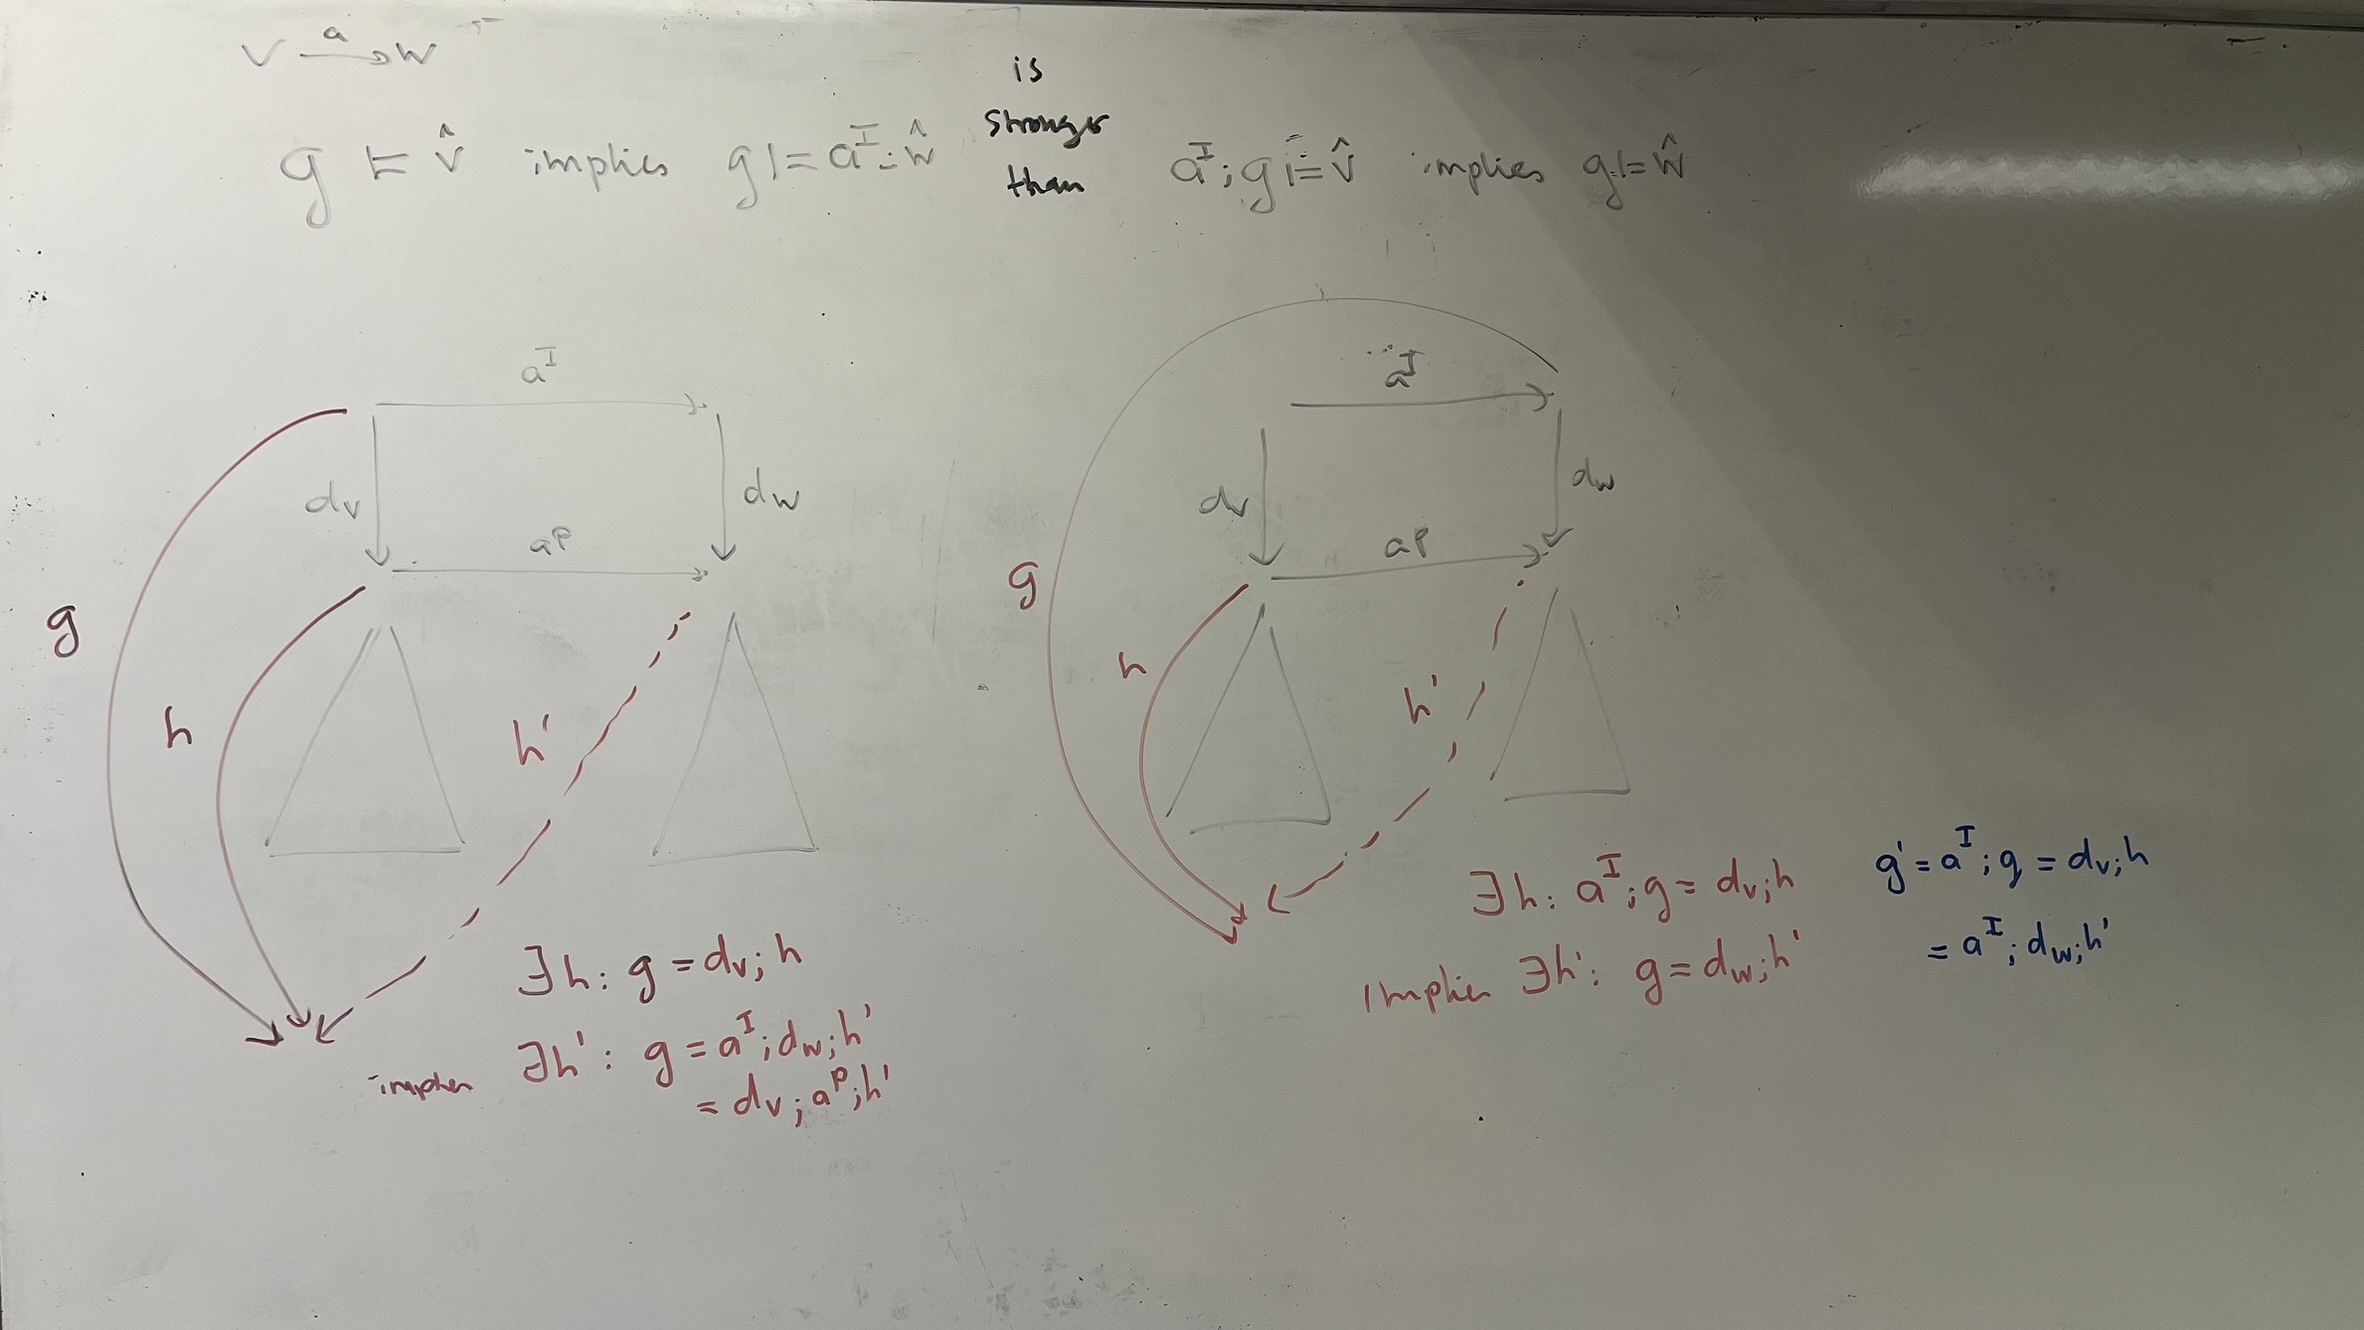 v —a→ w
g ⊨ v̂ implies g ⊨ a^I ; ŵ
is
stronger
than
a^I ; g ⊨ v̂ implies g ⊨ ŵ
a^I
dv
dw
a^P
g
h
h'
∃h: g = dv; h
implies ∃h': g = a^I; dw; h'
= dv; a^P; h'
a^I
dv
dw
a^P
g
h
h'
∃h: a^I; g = dv; h
implies ∃h': g = dw; h'
g' = a^I; g = dv; h
= a^I; dw; h'